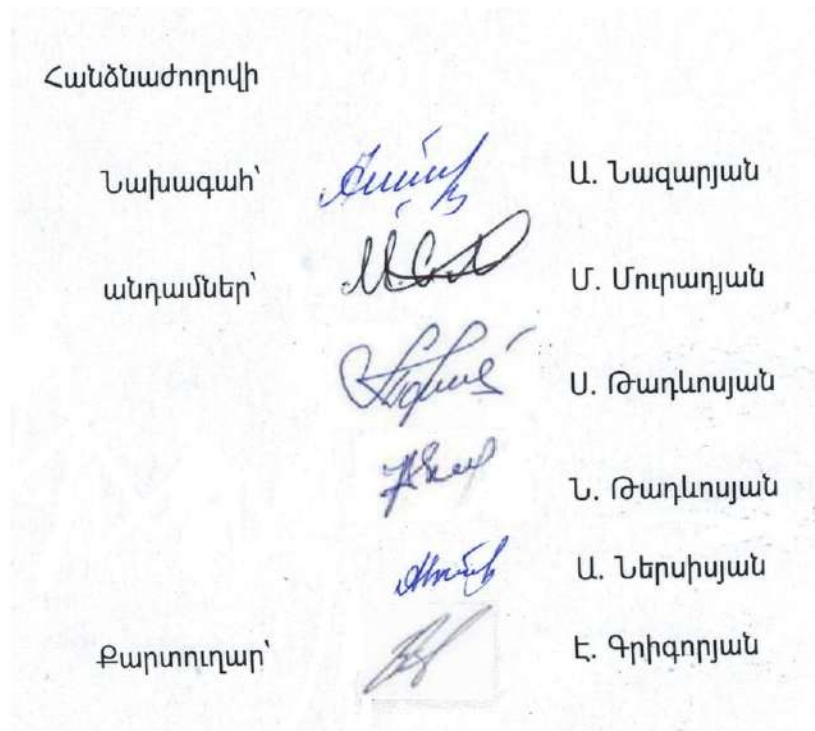 Հանձնաժողովի
Նախագահ՝ Ա. Նազարյան
անդամներ՝ Մ. Մուրադյան
Ս. Թադևոսյան
Ն. Թադևոսյան
Ա. Ներսիսյան
Քարտուղար՝ Է. Գրիգորյան